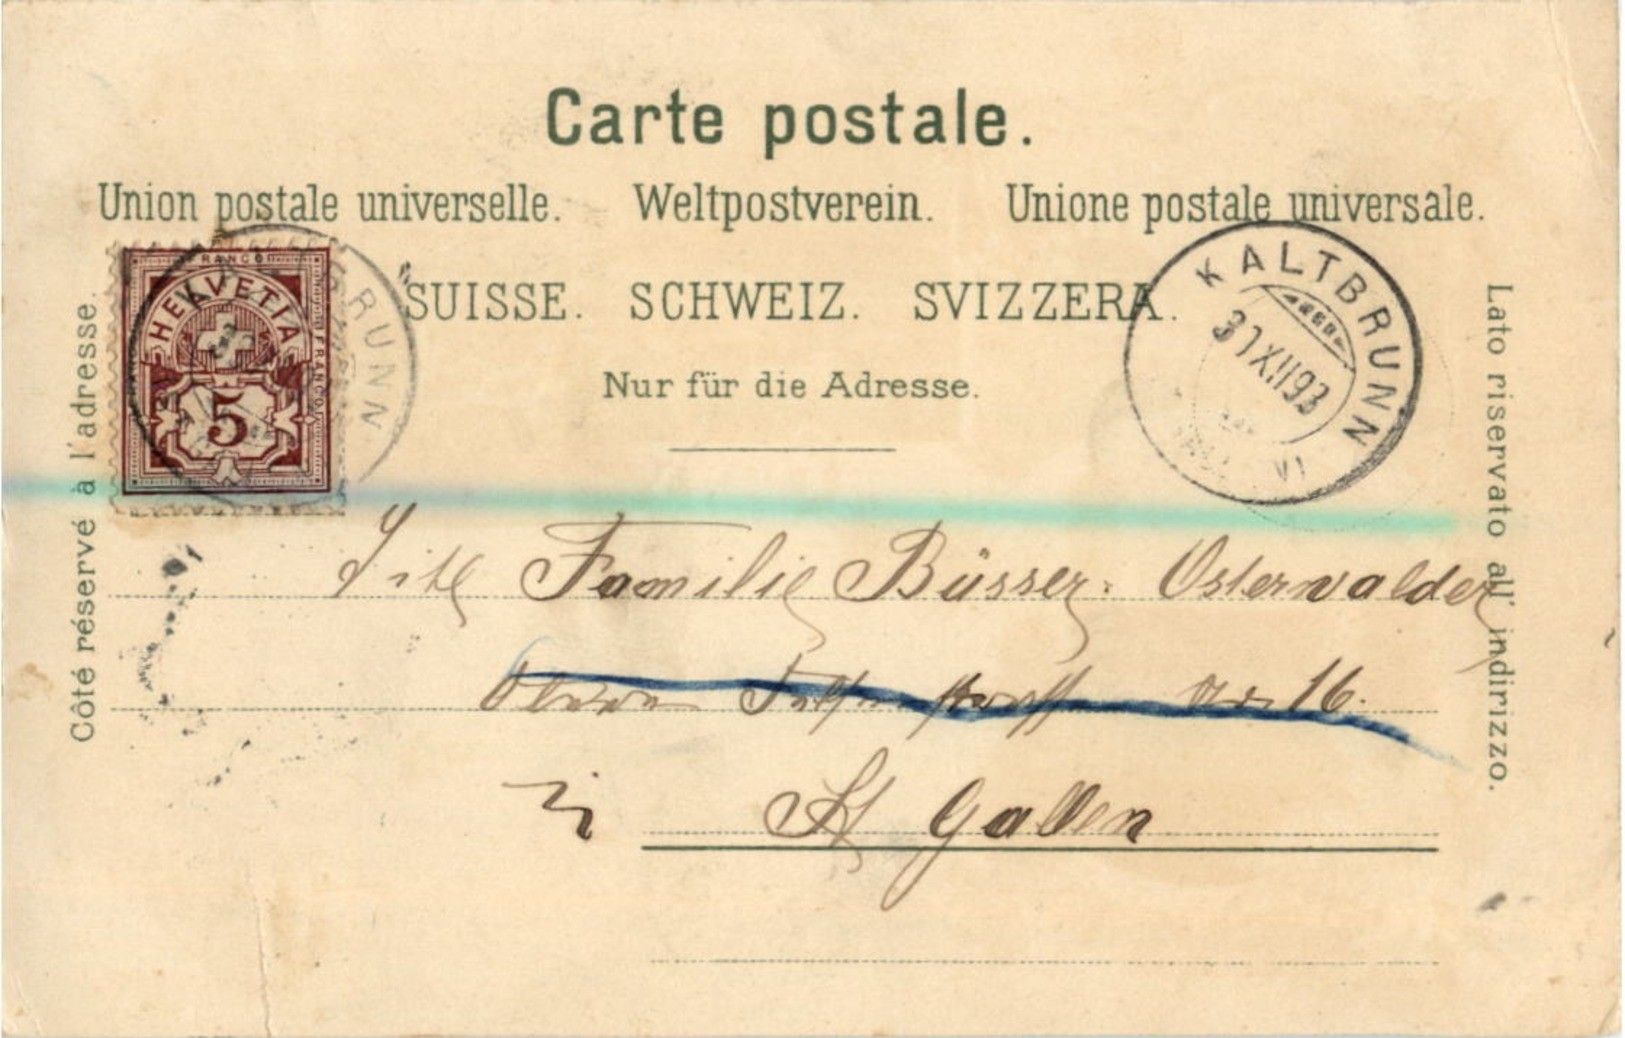 Carte postale.
Union postale universelle. Weltpostverein. Unione postale universale.
SUISSE. SCHWEIZ. SVIZZERA.
Nur für die Adresse.
Côté réservé à l'adresse.
Lato riservato all' indirizzo.
FRANCO
HELVETIA
FRANCO
5
BRUNN
KALTBRUNN
31 XII 93
VI
Titl Familie Büsser-Osterwalder
16.
in St Gallen